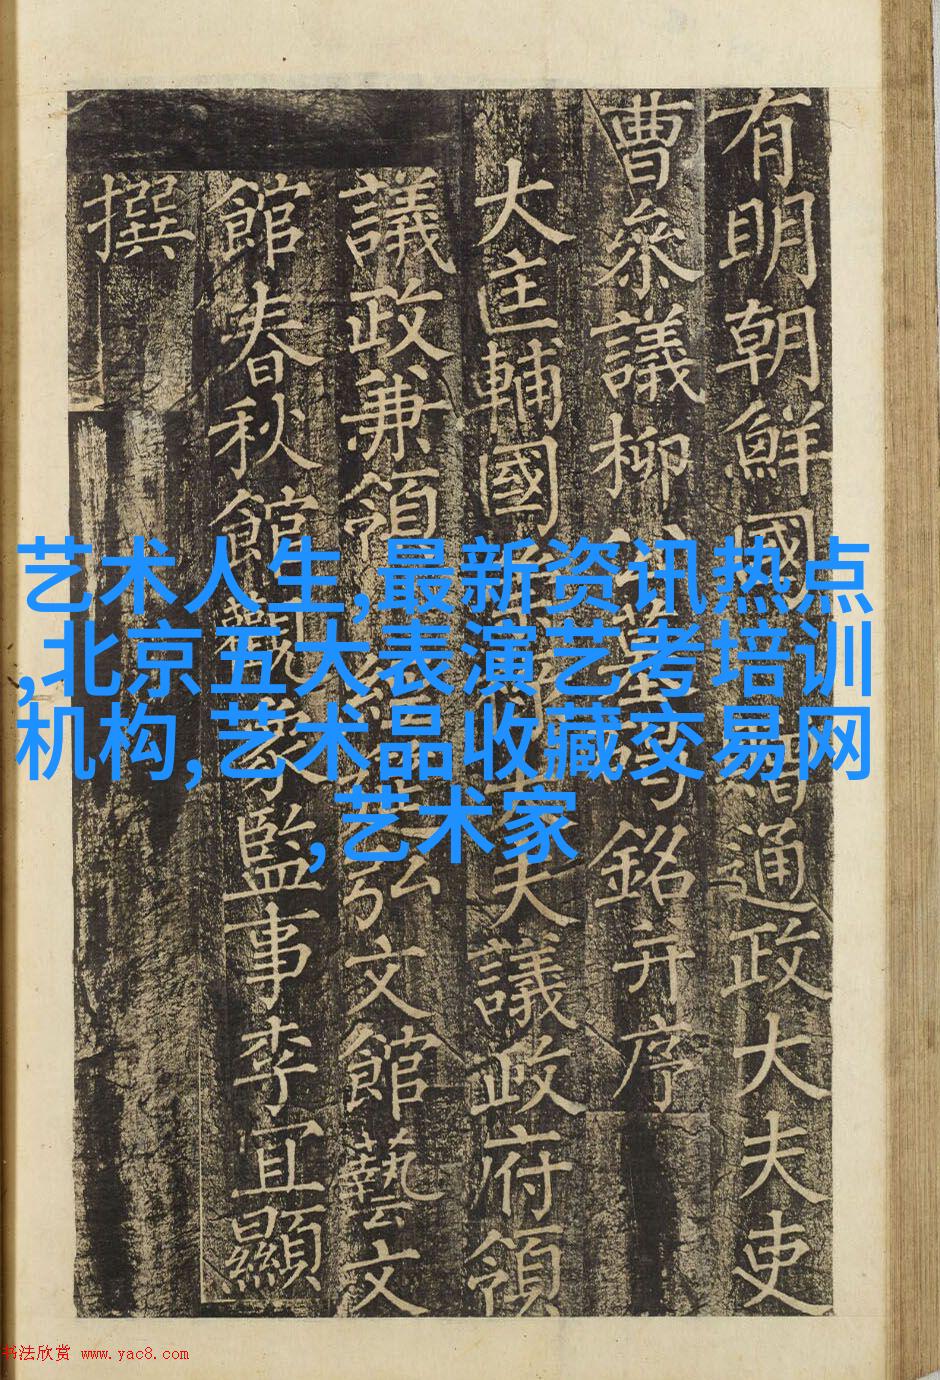 有明朝鮮國通政大夫吏
曹參議柳公墓碣銘并序
大匡輔國崇祿大夫議政府領
議政兼領經筵弘文館藝文
館春秋館觀象監事李宜顯
撰
艺术人生,最新资讯热点
,北京五大表演艺考培训
机构,艺术品收藏交易网
,艺术家
书法欣赏 www.yac8.com